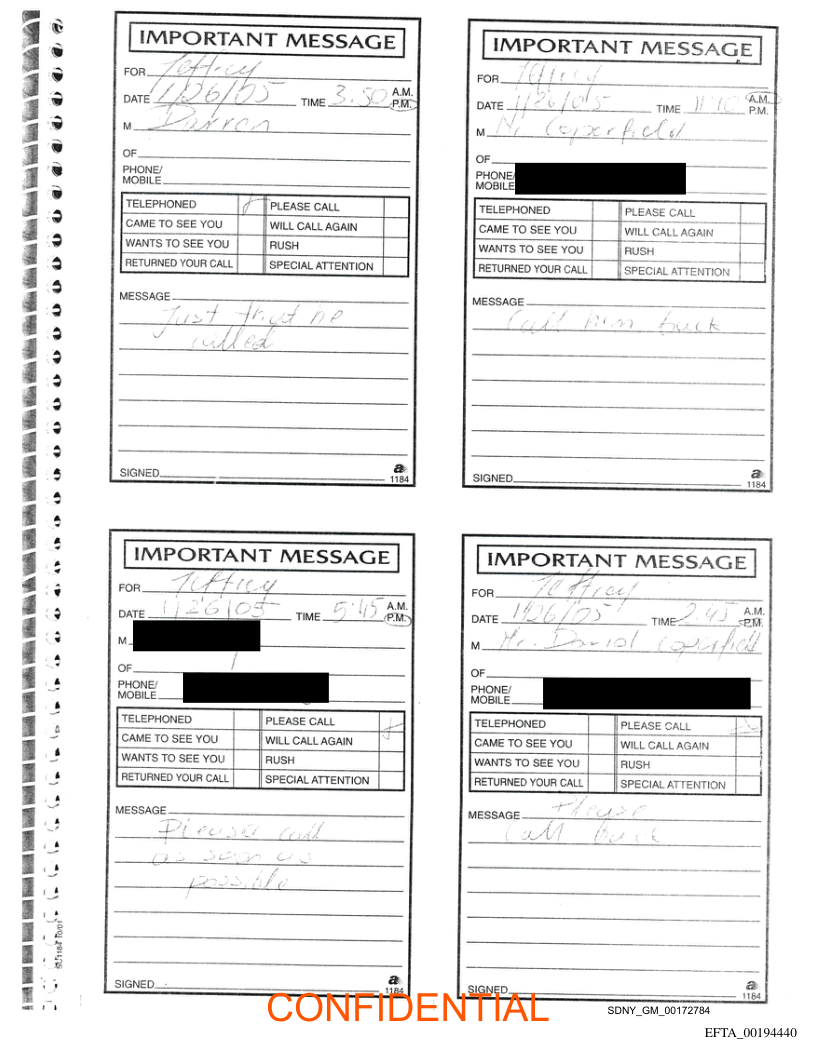 IMPORTANT MESSAGE
FOR Jeffrey
DATE 1/26/05 TIME 3:50 A.M. P.M.
M Darren
OF
PHONE/
MOBILE
TELEPHONED PLEASE CALL
CAME TO SEE YOU WILL CALL AGAIN
WANTS TO SEE YOU RUSH
RETURNED YOUR CALL SPECIAL ATTENTION
MESSAGE
Just that he
called
SIGNED
a
1184
IMPORTANT MESSAGE
FOR Jeffrey
DATE 1/26/05 TIME 11:10 A.M. P.M.
M Coperfield
OF
PHONE/
MOBILE
TELEPHONED PLEASE CALL
CAME TO SEE YOU WILL CALL AGAIN
WANTS TO SEE YOU RUSH
RETURNED YOUR CALL SPECIAL ATTENTION
MESSAGE
Call him back
SIGNED
a
1184
IMPORTANT MESSAGE
FOR Jeffrey
DATE 1/26/05 TIME 5:45 A.M. P.M.
M
OF
PHONE/
MOBILE
TELEPHONED PLEASE CALL
CAME TO SEE YOU WILL CALL AGAIN
WANTS TO SEE YOU RUSH
RETURNED YOUR CALL SPECIAL ATTENTION
MESSAGE
Please call
as soon as
possible
SIGNED
a
1184
IMPORTANT MESSAGE
FOR Jeffrey
DATE 1/26/05 TIME 2:45 A.M. P.M.
M Mr. David Coperfield
OF
PHONE/
MOBILE
TELEPHONED PLEASE CALL
CAME TO SEE YOU WILL CALL AGAIN
WANTS TO SEE YOU RUSH
RETURNED YOUR CALL SPECIAL ATTENTION
MESSAGE Please
call back
SIGNED
a
1184
CONFIDENTIAL
SDNY_GM_00172784
EFTA_00194440